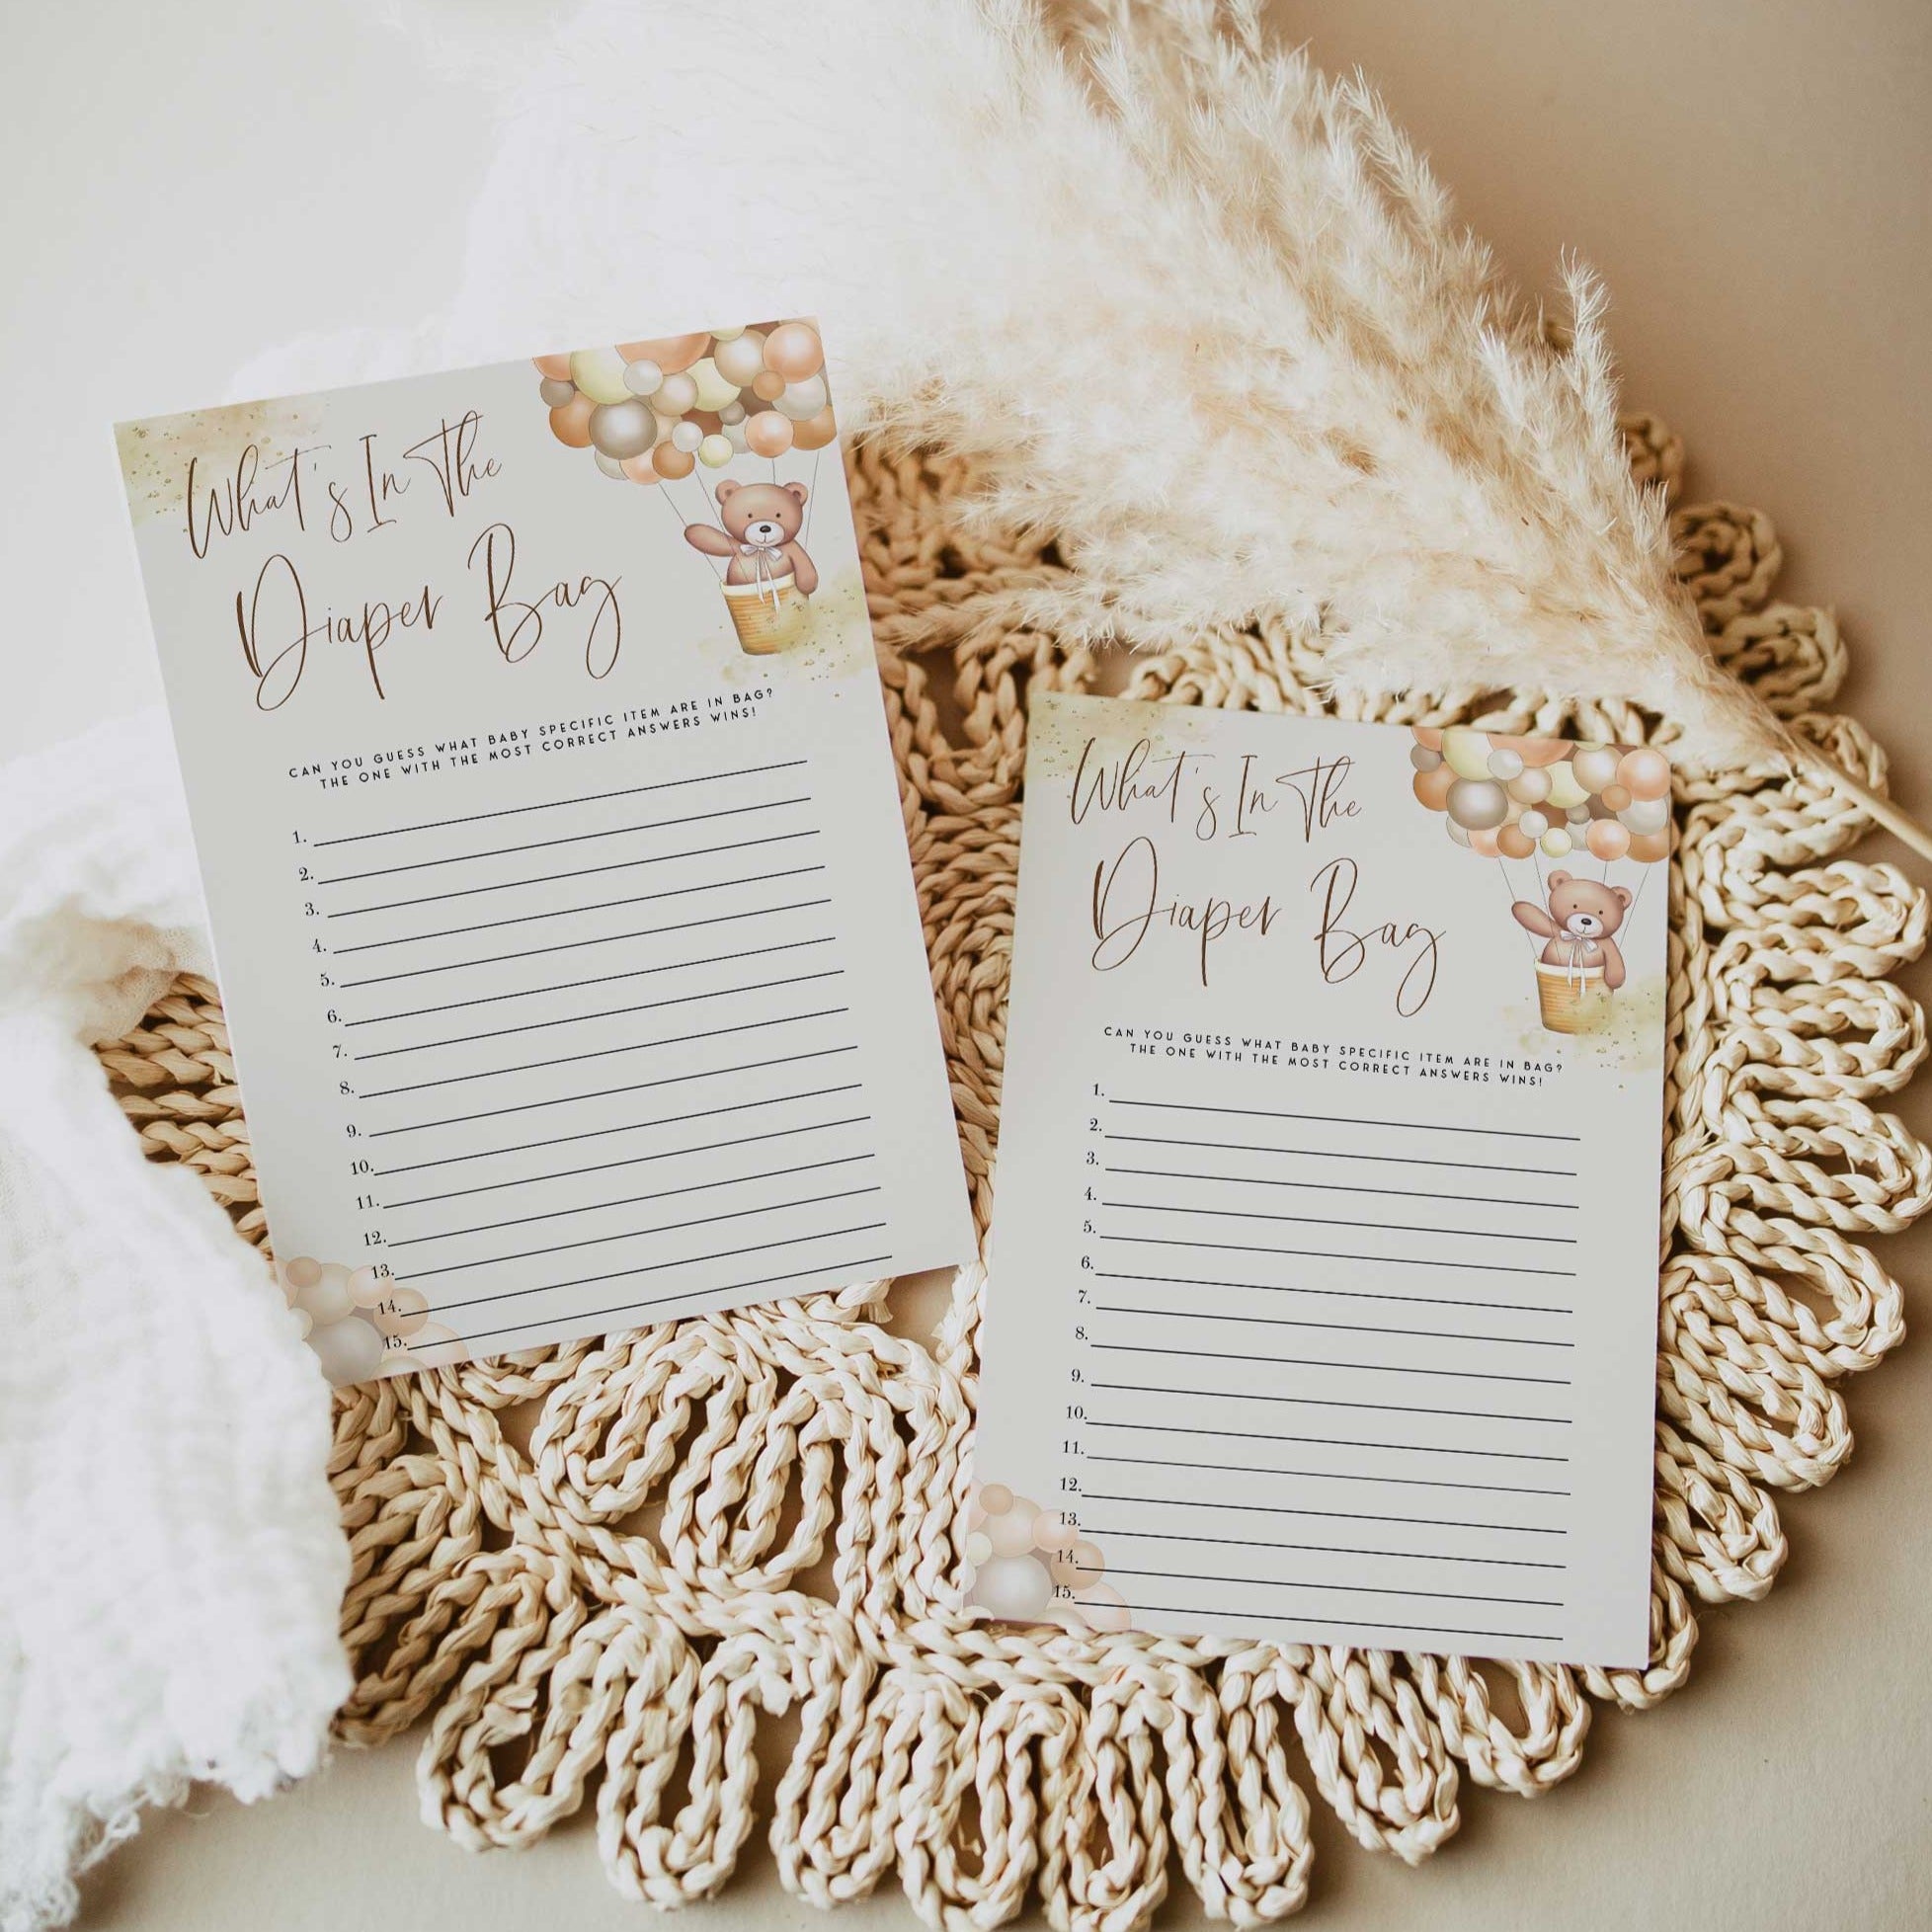 What's In The
Diaper Bag
CAN YOU GUESS WHAT BABY SPECIFIC ITEM ARE IN BAG?
THE ONE WITH THE MOST CORRECT ANSWERS WINS!
1.
2.
3.
4.
5.
6.
7.
8.
9.
10.
11.
12.
13.
14.
15.
What's In The
Diaper Bag
CAN YOU GUESS WHAT BABY SPECIFIC ITEM ARE IN BAG?
THE ONE WITH THE MOST CORRECT ANSWERS WINS!
1.
2.
3.
4.
5.
6.
7.
8.
9.
10.
11.
12.
13.
14.
15.